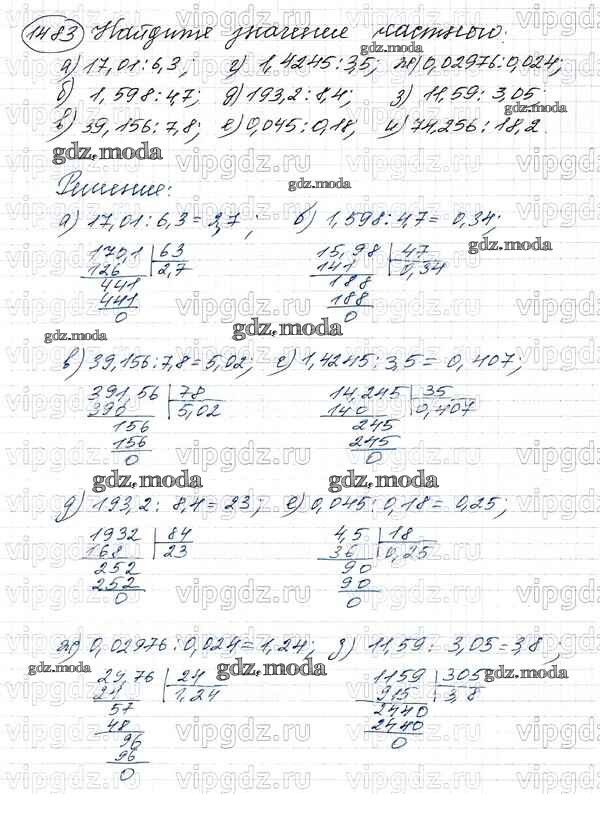 1483 Найдите значение частного:
а) 17,01:6,3; г) 1,4245:3,5; ж) 0,02976:0,024;
б) 1,598:4,7; д) 193,2:8,4; з) 11,59:3,05;
в) 39,156:7,8; е) 0,045:0,18; и) 74,256:18,2.
Решение:
а) 17,01:6,3=2,7; б) 1,598:4,7=0,34;
170,1 63 15,98 47
126 2,7 141 0,34
441 188
441 188
0 0
в) 39,156:7,8=5,02; г) 1,4245:3,5=0,407;
391,56 78 14,245 35
390 5,02 140 0,407
156 245
156 245
0 0
д) 193,2:8,4=23; е) 0,045:0,18=0,25;
1932 84 4,5 18
168 23 36 0,25
252 90
252 90
0 0
ж) 0,02976:0,024=1,24; д) 11,59:3,05=3,8;
29,76 24 1159 305
24 1,24 915 3,8
57 2440
48 2440
96 0
96
0
gdz.moda
vipgdz.ru